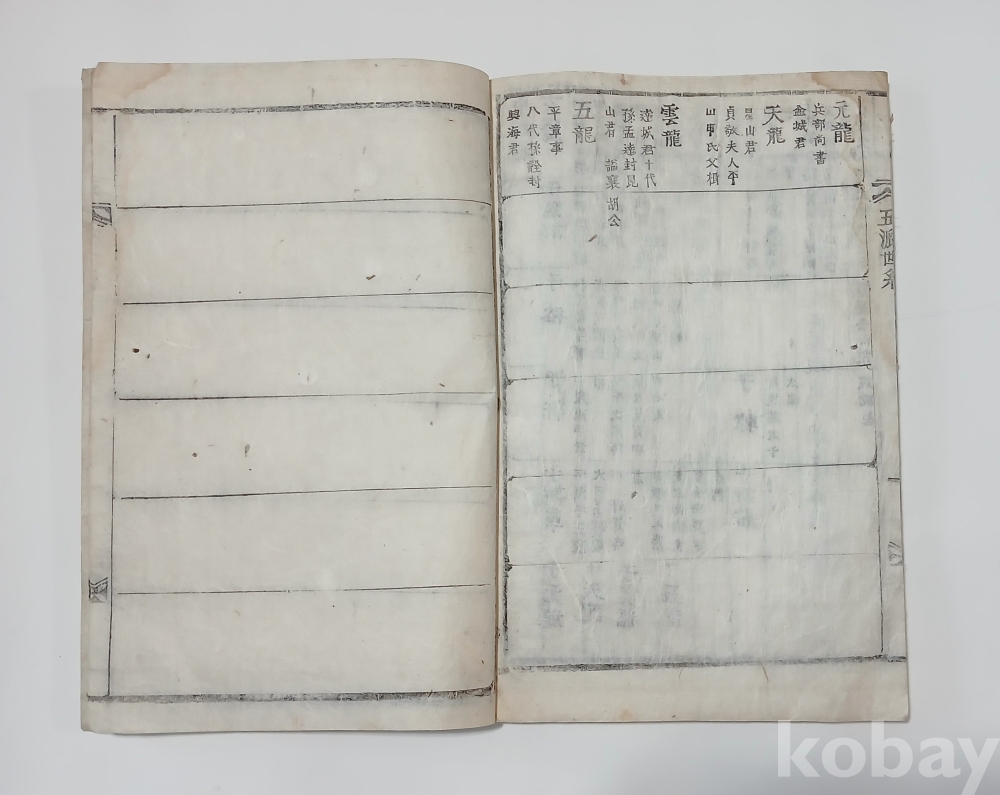 元龍
兵部尚書
金城君
天龍
星山君
貞敬夫人平
山申氏父楫
雲龍
遼城君十代
孫孟達封昆
山君 謚襄胡公
五龍
平章事
八代孫 封
興海君
五派世系
kobay